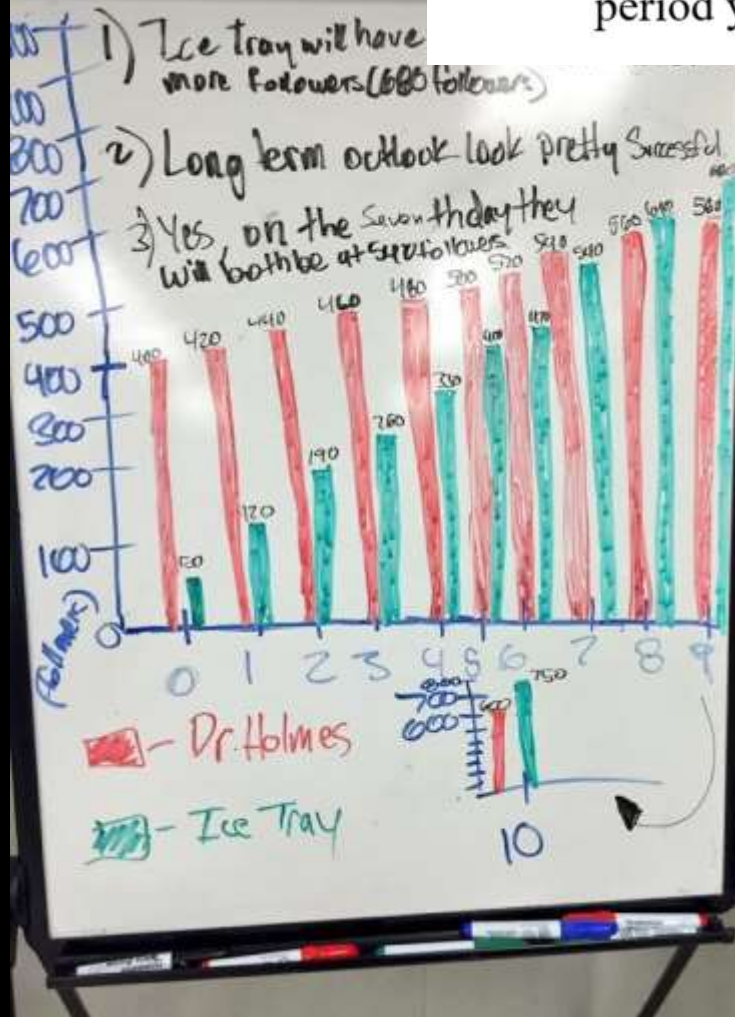 period
1) Ice tray will have
more followers (680 followers)
2) Long term outlook look pretty Successful
3) Yes, on the Seventh day they
will both be at 540 followers
800
700
600
500
400
300
200
100
0
400
420
440
460
480
500
520
540
560
580
50
120
190
260
330
400
470
540
610
0 1 2 3 4 5 6 7 8 9
- Dr. Holmes
- Ice Tray
800
700
600
600
750
10